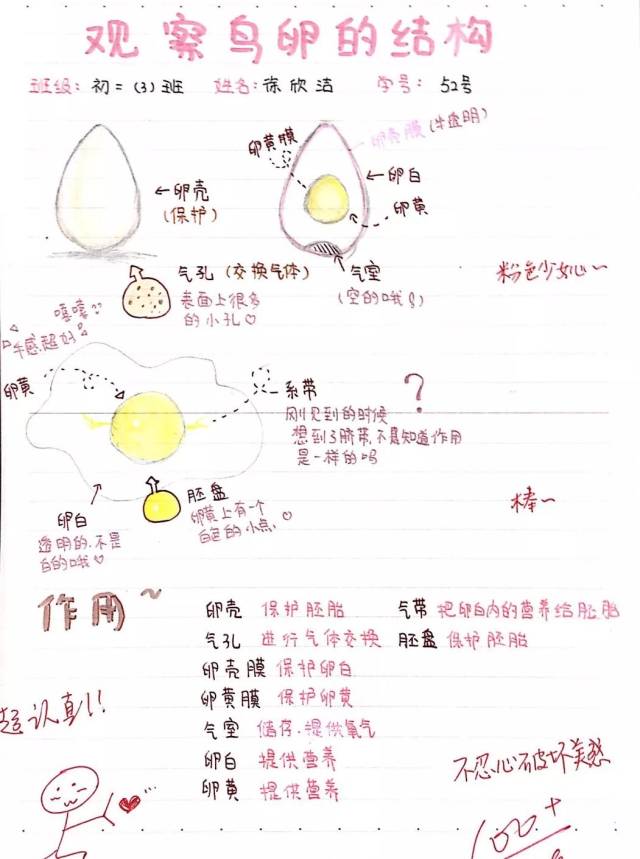 观察鸟卵的结构
班级: 初二 (3) 班 姓名: 徐欣洁 学号: 52号
卵壳膜 (半透明)
卵黄膜
卵白
←卵壳
(保护)
卵黄
气孔 (交换气体)
气室
(空的哦!)
表面上很多
的小孔♡
嘻嘻
手感超好
粉色少女心~
卵黄
系带
?
刚见到的时候
想到了脐带,不知道作用
是一样的吗
胚盘
卵黄上有一个
白色的小点、♡
卵白
透明的、不是
白的哦♡
棒~
作用~
卵壳 保护胚胎 气带 把卵白内的营养给胚胎
气孔 进行气体交换 胚盘 保护胚胎
卵壳膜 保护卵白
卵黄膜 保护卵黄
气室 储存、提供氧气
卵白 提供营养
卵黄 提供营养
超认真!!
不忍心破坏美感
100+